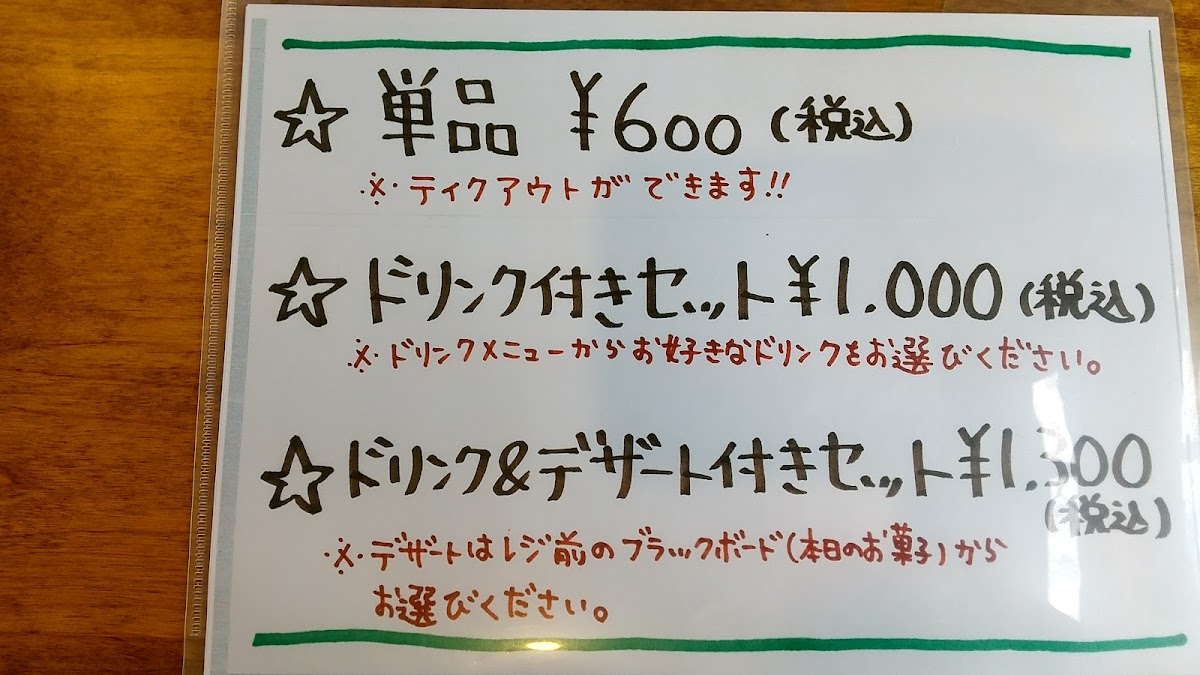 ☆ 単品 ¥600 (税込)
※ ティクアウトができます!!
☆ ドリンク付きセット ¥1.000 (税込)
※ ドリンクメニューからお好きなドリンクをお選びください。
☆ ドリンク&デザート付きセット ¥1.300
(税込)
※ デザートはレジ前のブラックボード(本日のお菓子)から
お選びください。